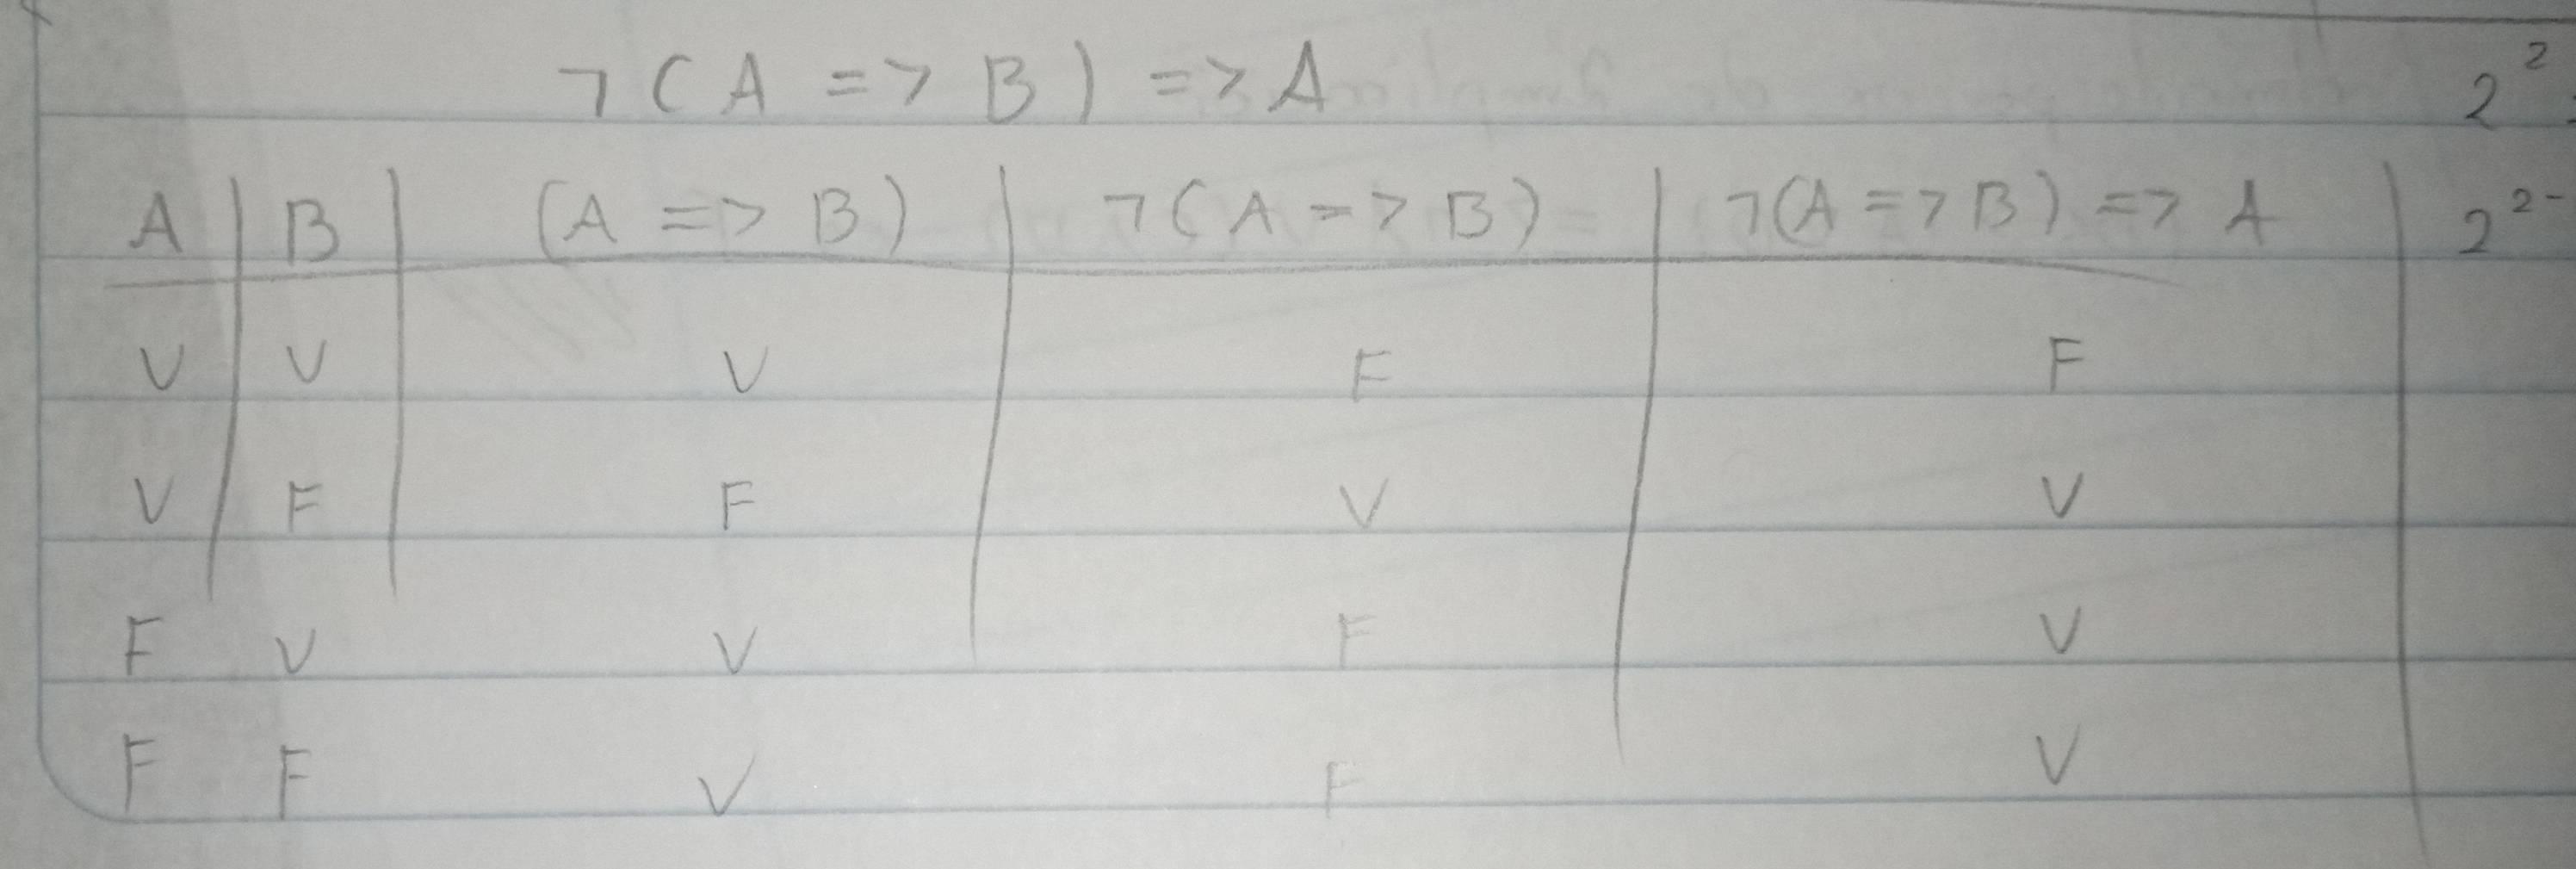 ¬(A => B) => A 2²
A B (A => B) ¬(A => B) ¬(A => B) => A 2²⁻
V V V F F
V F F V V
F V V F V
F F V F V